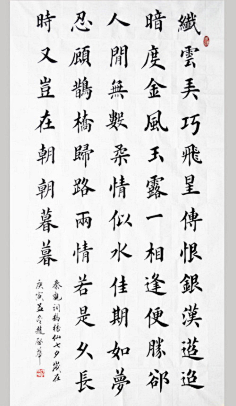 纖雲弄巧飛星傳恨銀漢迢迢
暗度金風玉露一相逢便勝卻
人閒無數柔情似水佳期如夢
忍顧鵲橋歸路兩情若是久長
時又豈在朝朝暮暮
秦觀詞鵲橋仙七夕歲在
庚寅